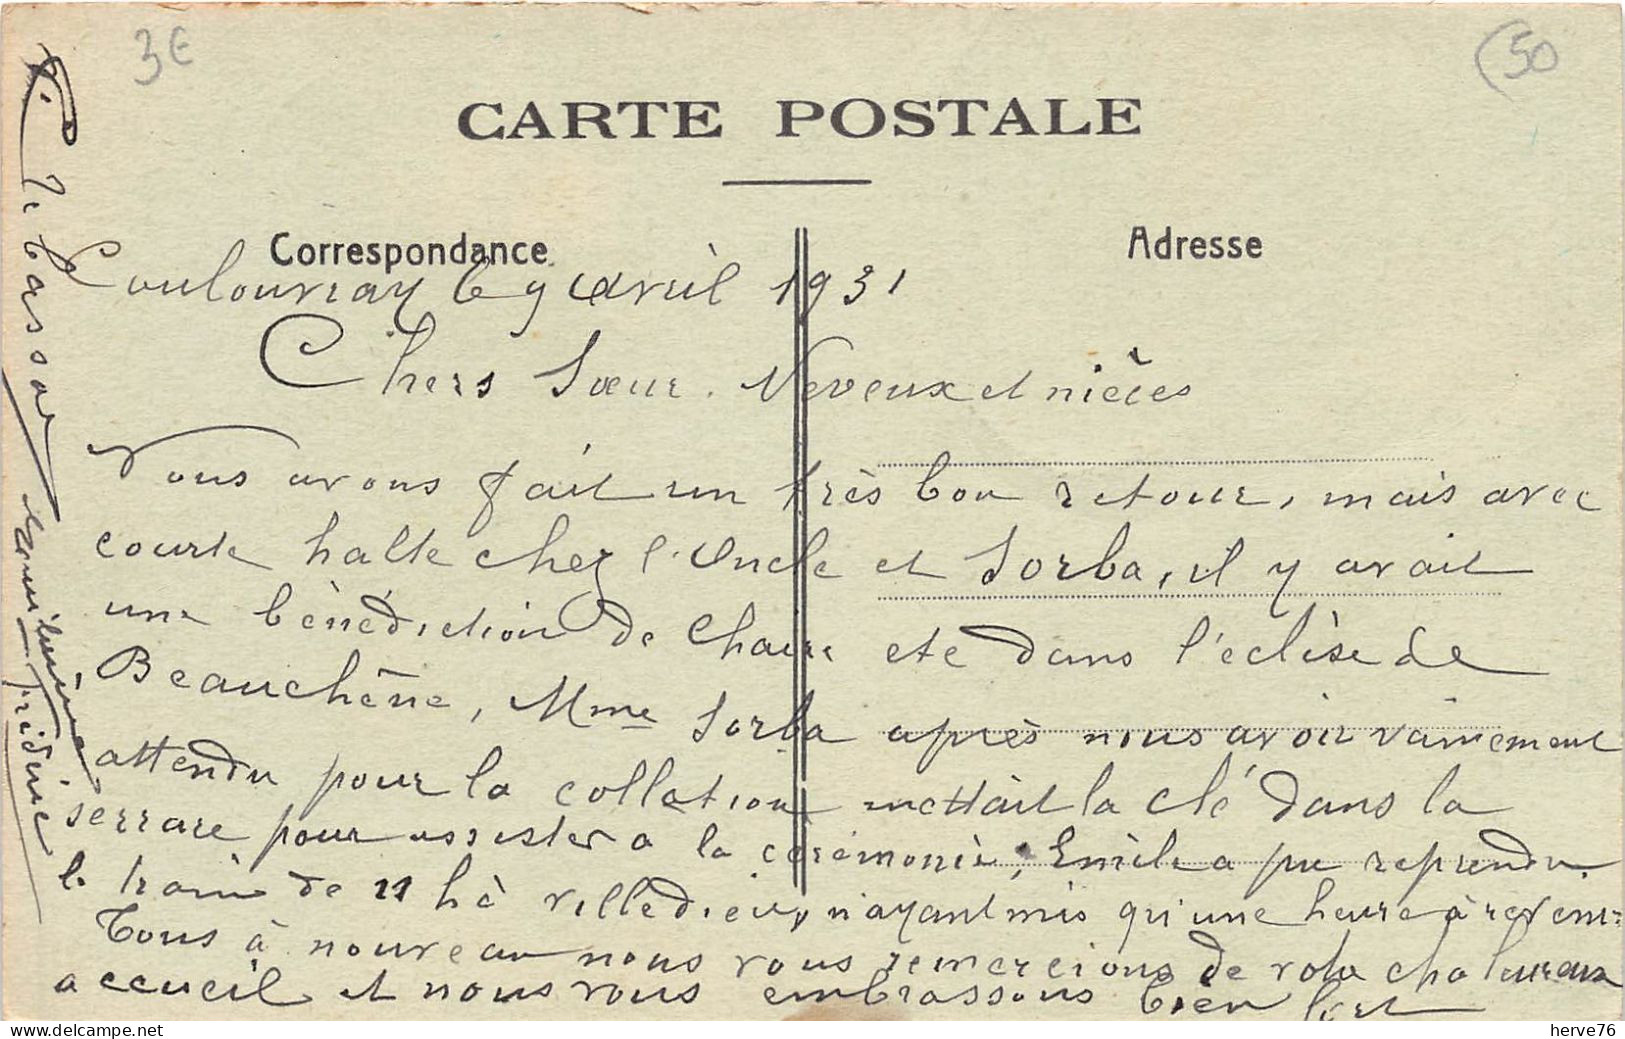 3€
(50
CARTE POSTALE
Correspondance
Adresse
Coulouvray le 9 Avril 1931
Chers Soeur. Neveux et nièces
Nous avons fait un très bon retour, mais avec
courte halte chez l'Oncle et Sorba, il y avait
une bénédiction de Chaire ete dans l'eclise de
Beauchêne, Mme Sorba après nous avoir vainement
attendu pour la collation mettait la clé dans la
serrare pour assister a la cérémonie, Emile a pu reprendre
le train de 11 h à Villedieu, n'ayant mis qu'une heure à revenir
Tous à nouveau nous vous remercions de votre chaleureux
accueil et nous vous embrassons bien fort
herve76